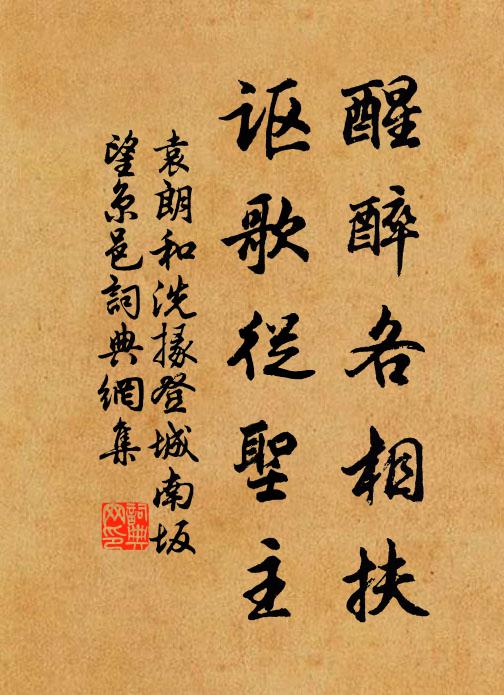 醒醉各相扶
讴歌從聖主
袁朗和洗掾登城南坂
望京邑詞典網集
詞典
网印